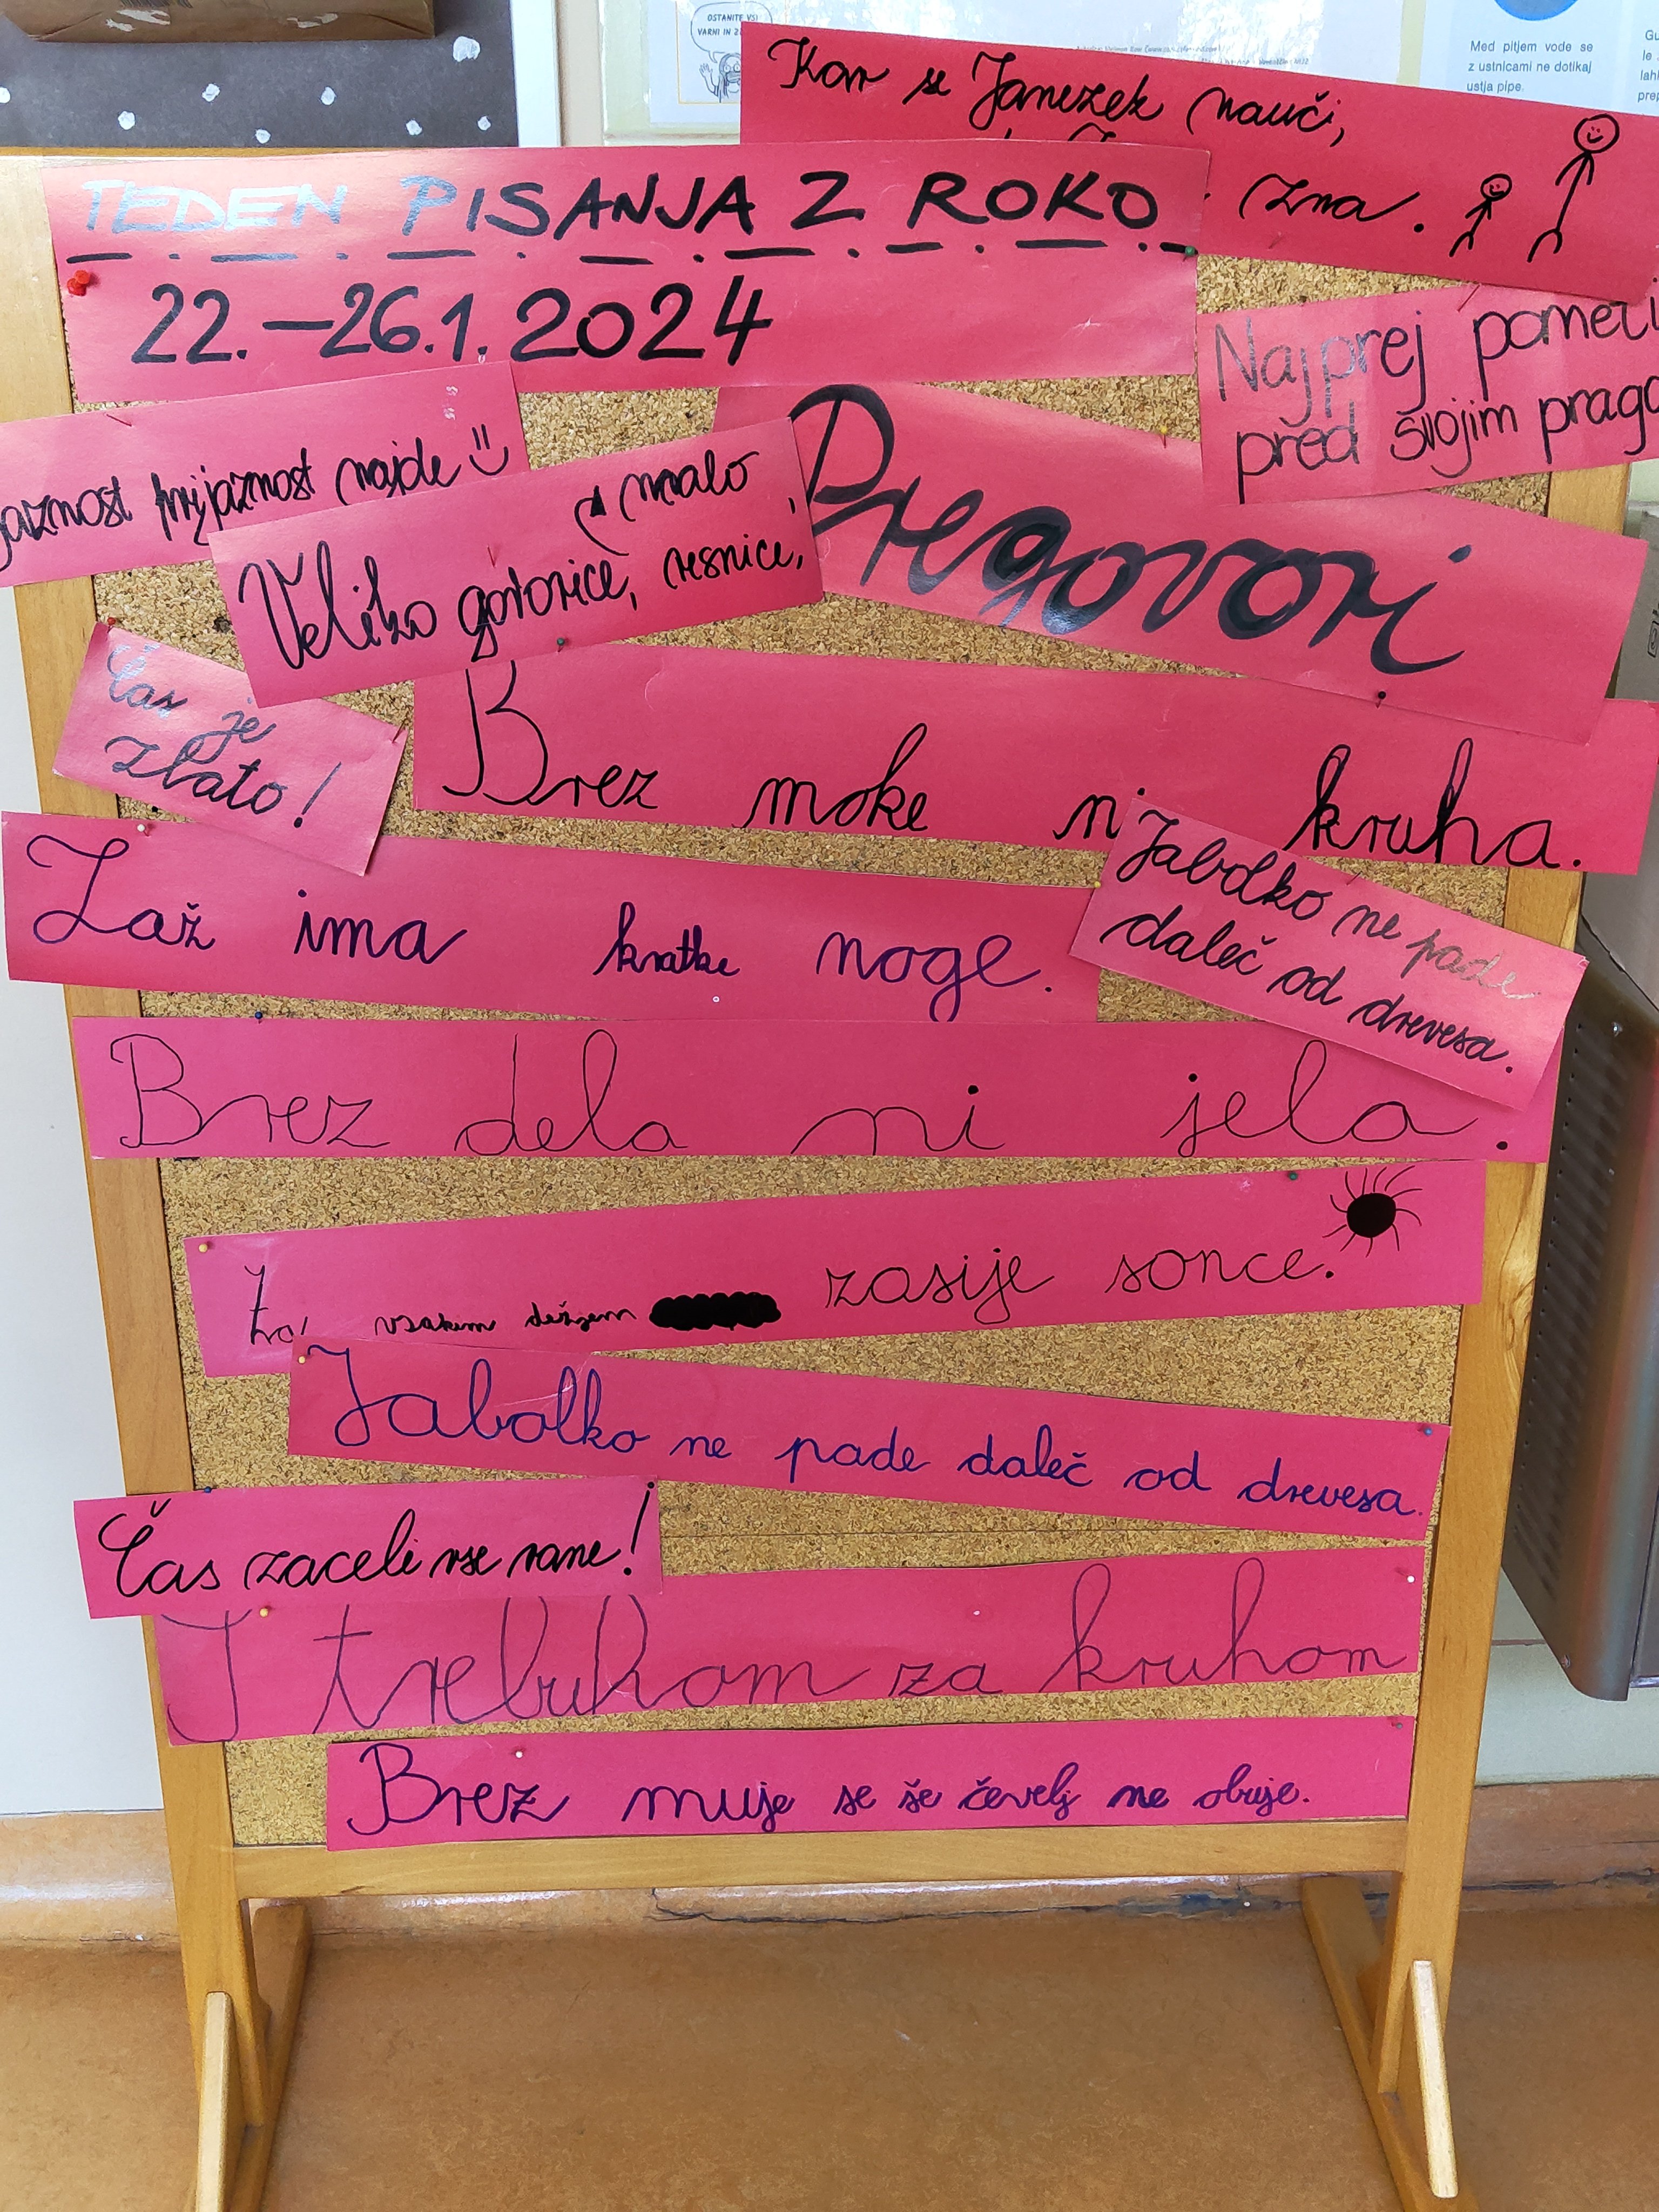 OSTANITE VSI
VARNI IN
Med pitjem vode se
z ustnicami ne dotikaj
ustja pipe.
Kar se Janezek nauči,
zna.
TEDEN PISANJA Z ROKO
22.–26.1.2024
Najprej pometi
pred svojim
prijaznost najde
malo
Veliko govorice, resnice,
Pregovori
Čas je
zlato!
Brez moke ni kruha.
Jabolko ne pade
daleč od drevesa.
Laž ima kratke noge.
Brez dela ni jela.
Za vsakim dežjem zasije sonce.
Jabolko ne pade daleč od drevesa.
Čas zaceli vse rane!
S trebuhom za kruhom
Brez muje se še čevelj ne obuje.